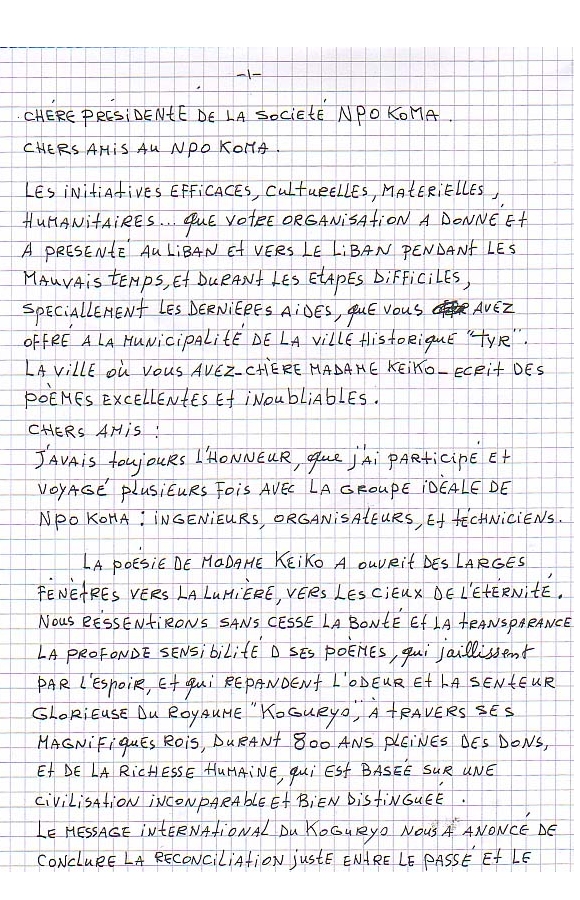 -1-
CHÈRE PRÉSIDENTE DE LA SOCIETÉ NPO KOMA.
CHERS AMIS AU NPO KOMA.
LES INITIATIVES EFFICACES, CULTURELLES, MATERIELLES,
HUMANITAIRES... QUE VOTRE ORGANISATION A DONNÉ ET
A PRESENTÉ AU LIBAN ET VERS LE LIBAN PENDANT LES
MAUVAIS TEMPS, ET DURANT LES ETAPES DIFFICILES,
SPECIALLEMENT LES DERNIÈRES AIDES, QUE VOUS AVEZ
OFFRÉ A LA MUNICIPALITÉ DE LA VILLE HISTORIQUE "TYR".
LA VILLE OÙ VOUS AVEZ-CHÈRE MADAME KEIKO-ECRIT DES
POÈMES EXCELLENTES ET INOUBLIABLES.
CHERS AMIS :
J'AVAIS TOUJOURS L'HONNEUR, QUE J'AI PARTICIPÉ ET
VOYAGÉ PLUSIEURS FOIS AVEC LA GROUPE IDÈALE DE
NPO KOMA : INGENIEURS, ORGANISATEURS, ET TÉCHNICIENS.
LA POÉSIE DE MADAME KEIKO A OUVRIT DES LARGES
FENÈTRES VERS LA LUMIÈRE, VERS LES CIEUX DE L'ETÉRNITÉ.
NOUS RESSENTIRONS SANS CESSE LA BONTÉ ET LA TRANSPARANCE
LA PROFONDE SENSIBILITÉ D SES POÈMES, QUI JAILLISSENT
PAR L'ESPOIR, ET QUI REPANDENT L'ODEUR ET LA SENTEUR
GLORIEUSE DU ROYAUME "KOGURYO", À TRAVERS SES
MAGNIFIQUES ROIS, DURANT 800 ANS PLEINES DES DONS,
ET DE LA RICHESSE HUMAINE, QUI EST BASÉE SUR UNE
CIVILISATION INCONPARABLE ET BIEN DISTINGUÉE.
LE MESSAGE INTERNATIONAL DU KOGURYO NOUS A ANONCÉ DE
CONCLURE LA RECONCILIATION JUSTE ENTRE LE PASSÉ ET LE